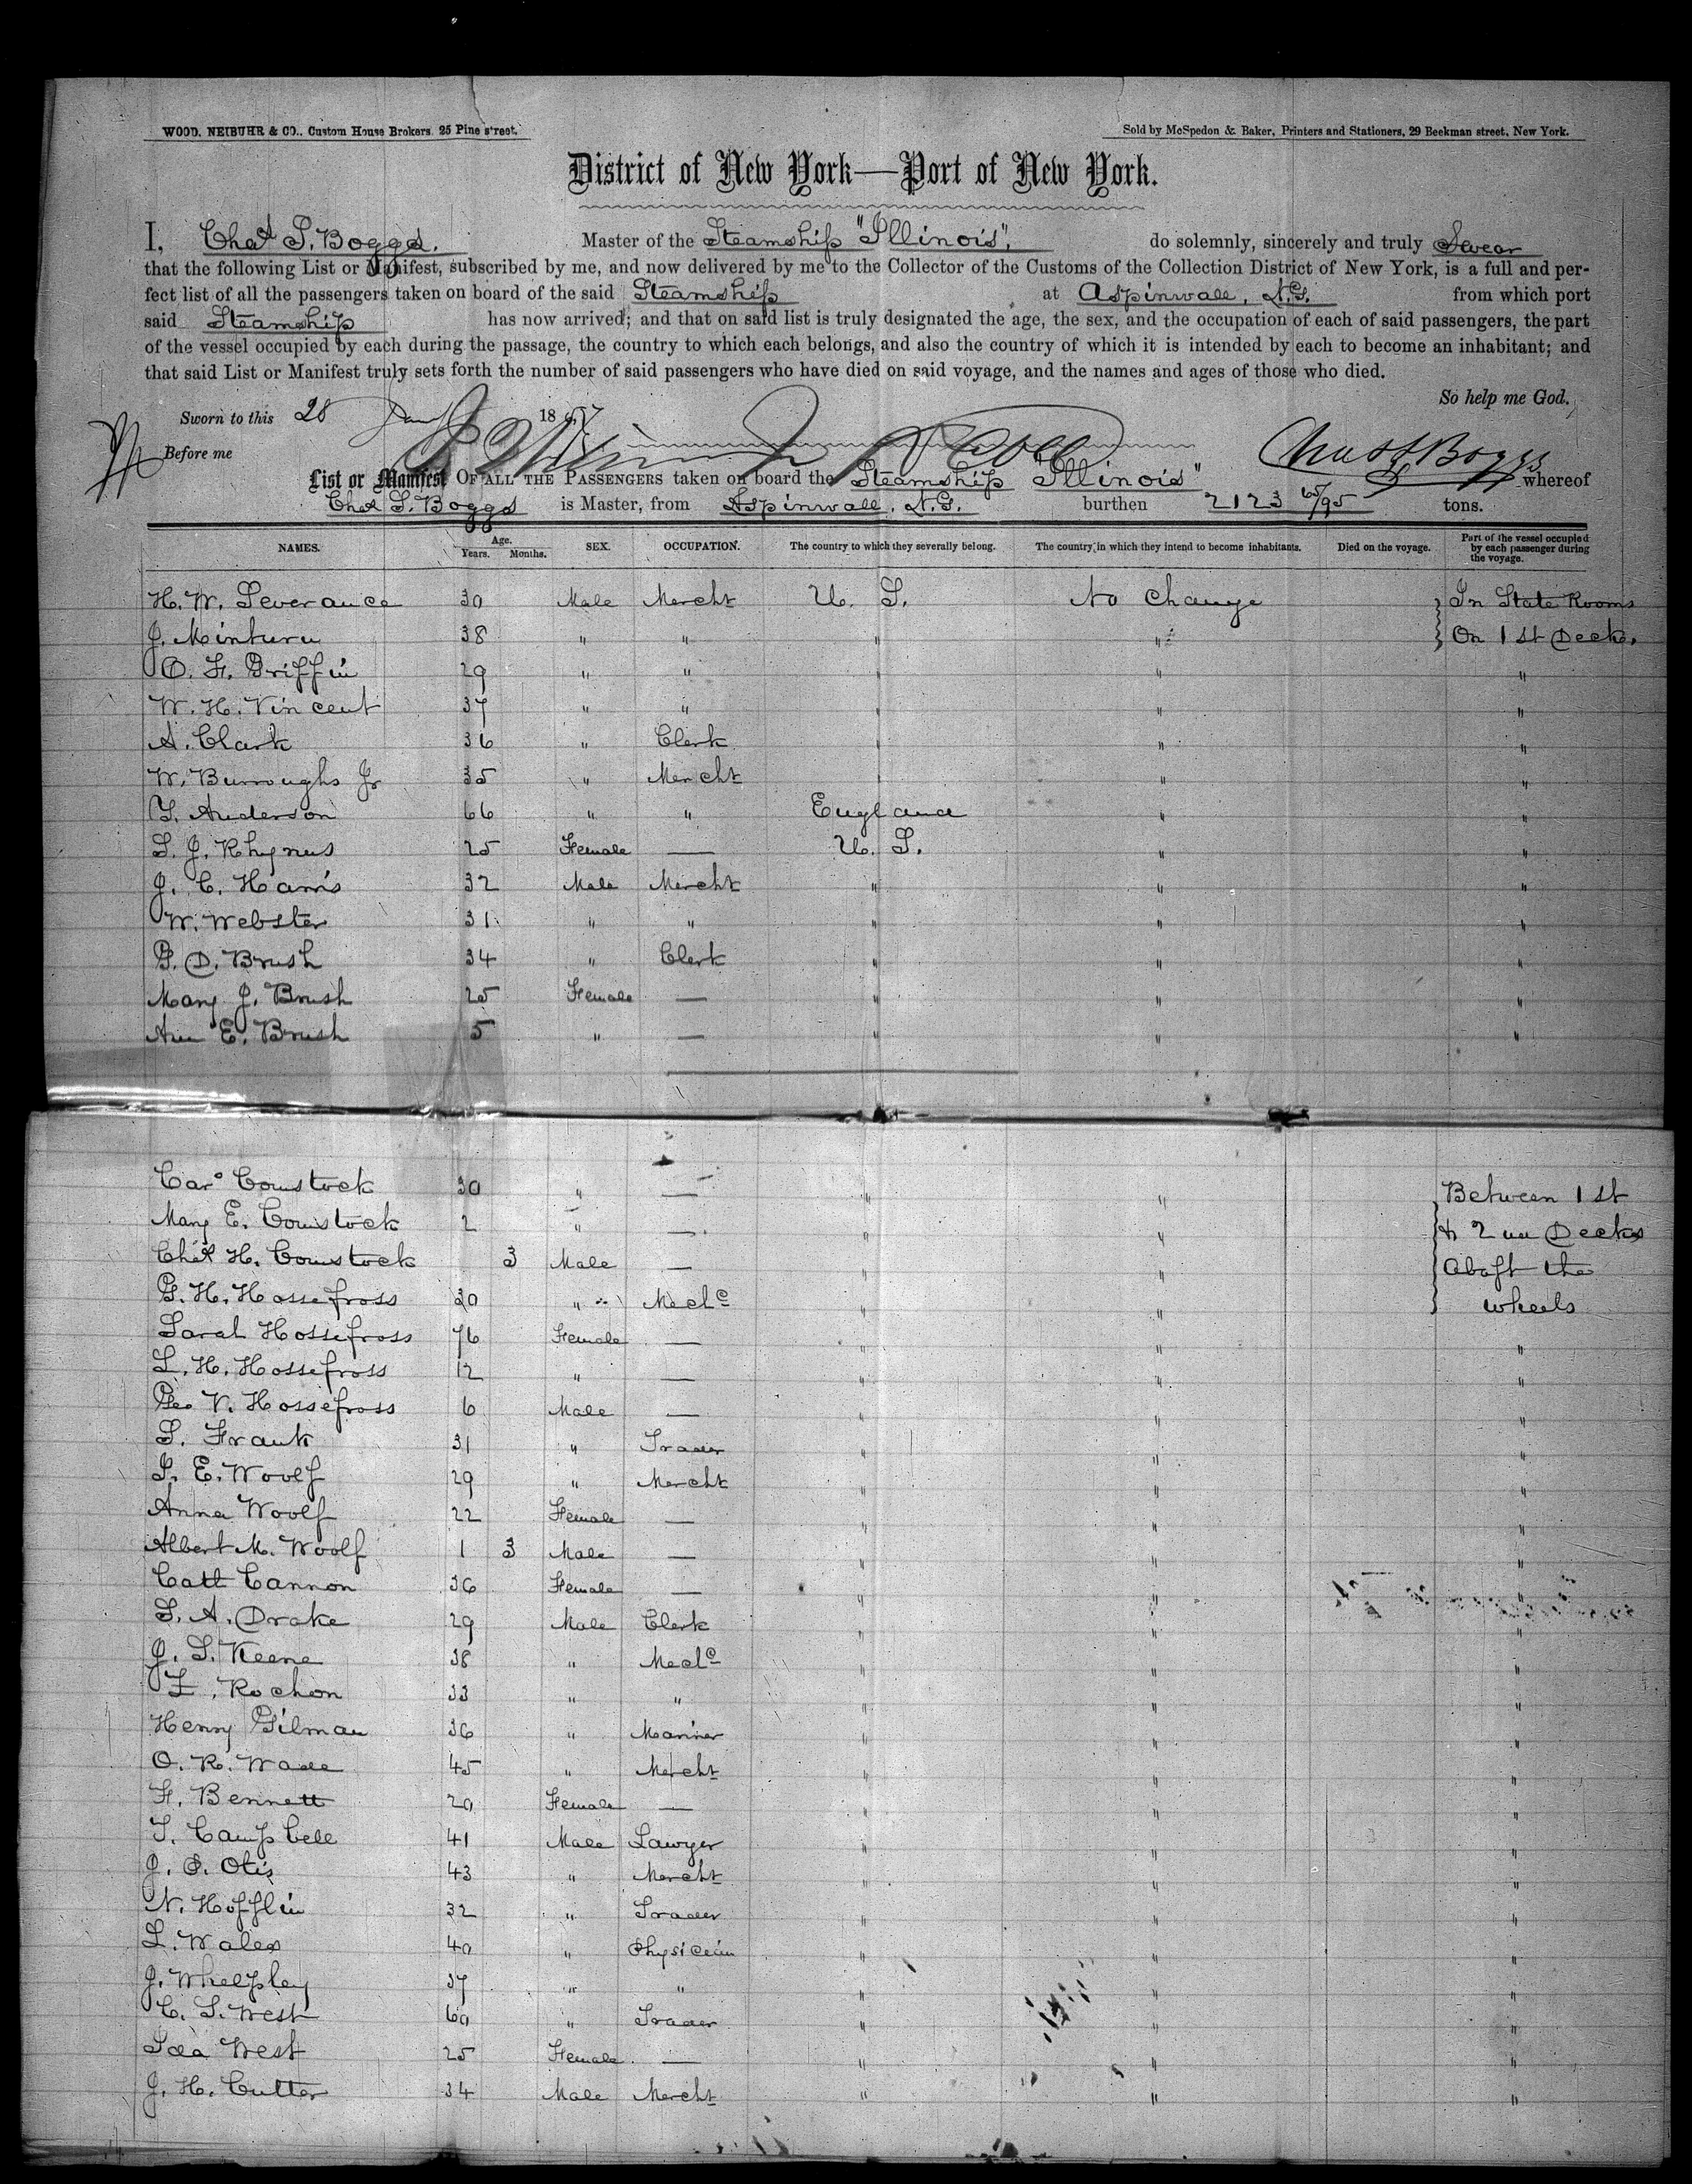 WOOD, NEIBUHR & CO., Custom House Brokers, 25 Pine street.
Sold by McSpedon & Baker, Printers and Stationers, 29 Beekman street, New York.
District of New York—Port of New York.
I, Chas S. Boggs. Master of the Steamship "Illinois", do solemnly, sincerely and truly Swear
that the following List or Manifest, subscribed by me, and now delivered by me to the Collector of the Customs of the Collection District of New York, is a full and per-
fect list of all the passengers taken on board of the said Steamship at Aspinwall, N.G. from which port
said Steamship has now arrived; and that on said list is truly designated the age, the sex, and the occupation of each of said passengers, the part
of the vessel occupied by each during the passage, the country to which each belongs, and also the country of which it is intended by each to become an inhabitant; and
that said List or Manifest truly sets forth the number of said passengers who have died on said voyage, and the names and ages of those who died.
So help me God.
Sworn to this 28 Jany 1857
Before me
Chas S Boggs
List or Manifest OF ALL THE PASSENGERS taken on board the Steamship "Illinois" whereof
Chas S. Boggs is Master, from Aspinwall, N.G. burthen 2123 65/95 tons.
NAMES. Age. Years. Months. SEX. OCCUPATION. The country to which they severally belong. The country in which they intend to become inhabitants. Died on the voyage. Part of the vessel occupied by each passenger during the voyage.
H. W. Severance 30 Male Mercht U. S. No Change In State Rooms
J. Minturn 38 " " " " On 1st Deck.
O. F. Griffin 29 " " " " "
W. H. Vincent 37 " " " " "
A. Clark 36 " Clerk " " "
W. Burroughs Jr 35 " Mercht " " "
T. Anderson 66 " " England " "
S. J. Rhynus 25 Female — U. S. " "
J. C. Harris 32 Male Mercht " " "
W. Webster 31 " " " " "
G. D. Brush 34 " Clerk " " "
Mary J. Brush 25 Female — " " "
Ann E. Brush 5 " — " " "
Caro Comstock 30 " — " " Between 1st
Mary E. Comstock 2 " — " " & 2nd Decks
Chas H. Comstock 3 Male — " " Abaft the
G. H. Hossefross 30 " Mechc " " wheels
Sarah Hossefross 76 Female — " " "
L. H. Hossefross 12 " — " " "
Geo V. Hossefross 6 Male — " " "
S. Frank 31 " Trader " " "
S. E. Woolf 29 " Mercht " " "
Anna Woolf 22 Female — " " "
Albert M. Woolf 1 3 Male — " " "
Cath Cannon 36 Female — " " "
S. A. Drake 29 Male Clerk " " "
J. S. Keene 38 " Mechc " " "
Z. Rochon 33 " " " " "
Henry Gilman 36 " Mariner " " "
O. R. Wade 45 " Mercht " " "
F. Bennett 20 Female — " " "
T. Campbell 41 Male Lawyer " " "
J. P. Otis 43 " Mercht " " "
N. Hofflin 32 " Trader " " "
L. Wales 40 " Physician " " "
J. Whelpley 37 " " " " "
C. S. West 60 " Trader " " "
Ida West 25 Female — " " "
J. H. Cutter 34 Male Mercht " " "